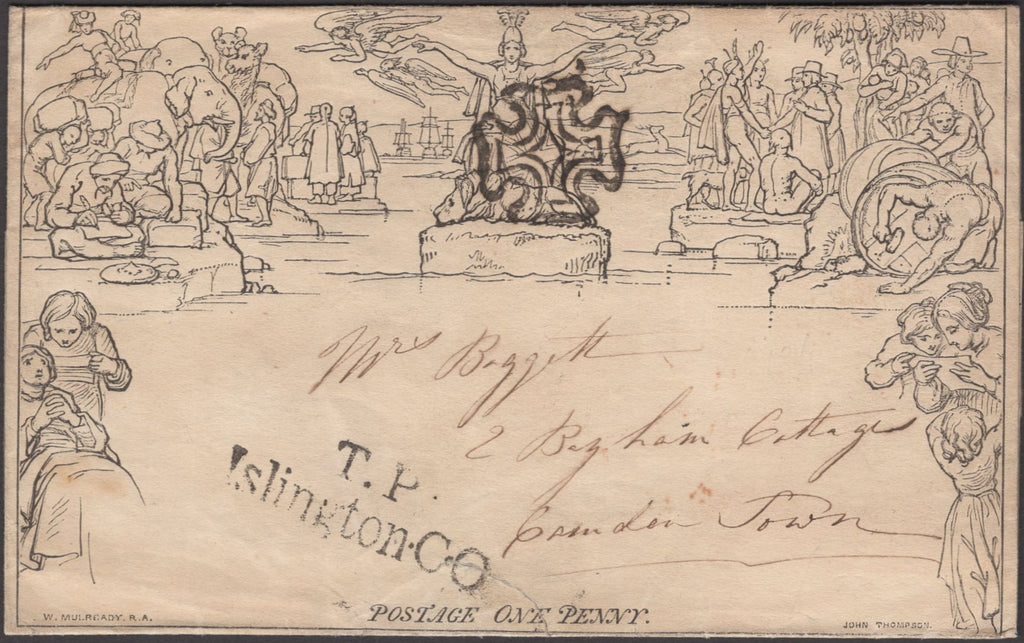 Mrs Baggett
2 Bayham Cottage
Camden Town
T.P.
Islington·C·O
POSTAGE ONE PENNY.
W. MULREADY. R.A.
JOHN THOMPSON.